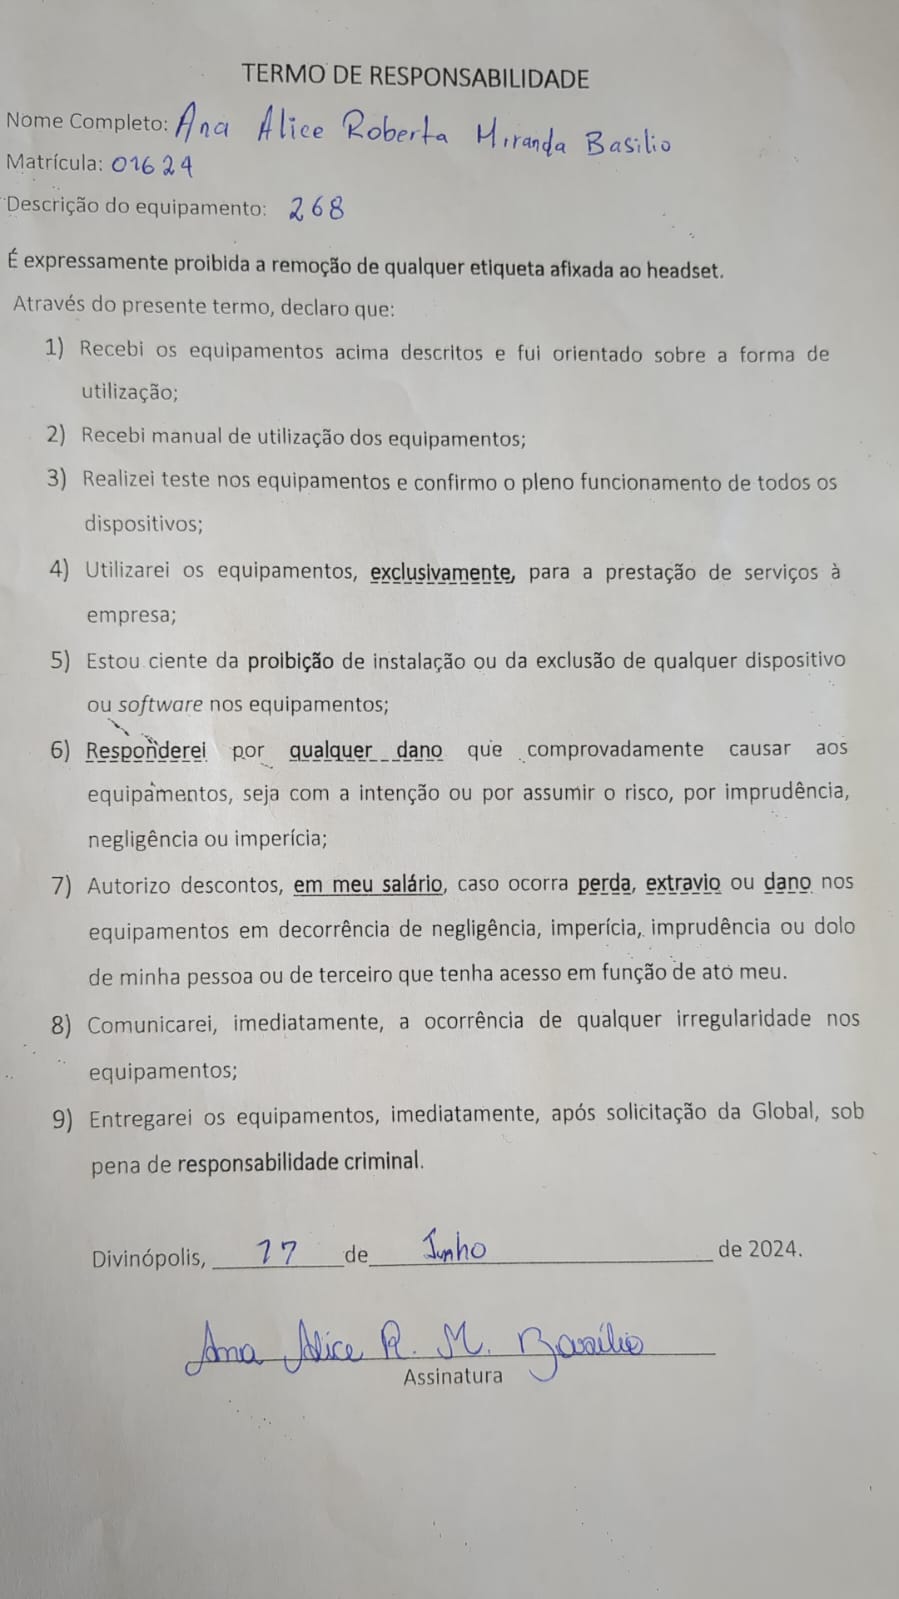 TERMO DE RESPONSABILIDADE
Nome Completo: Ana Alice Roberta Miranda Basilio
Matrícula: 01624
Descrição do equipamento: 268
É expressamente proibida a remoção de qualquer etiqueta afixada ao headset.
Através do presente termo, declaro que:
1) Recebi os equipamentos acima descritos e fui orientado sobre a forma de
utilização;
2) Recebi manual de utilização dos equipamentos;
3) Realizei teste nos equipamentos e confirmo o pleno funcionamento de todos os
dispositivos;
4) Utilizarei os equipamentos, exclusivamente, para a prestação de serviços à
empresa;
5) Estou ciente da proibição de instalação ou da exclusão de qualquer dispositivo
ou software nos equipamentos;
6) Responderei por qualquer dano que comprovadamente causar aos
equipamentos, seja com a intenção ou por assumir o risco, por imprudência,
negligência ou imperícia;
7) Autorizo descontos, em meu salário, caso ocorra perda, extravio ou dano nos
equipamentos em decorrência de negligência, imperícia, imprudência ou dolo
de minha pessoa ou de terceiro que tenha acesso em função de ato meu.
8) Comunicarei, imediatamente, a ocorrência de qualquer irregularidade nos
equipamentos;
9) Entregarei os equipamentos, imediatamente, após solicitação da Global, sob
pena de responsabilidade criminal.
Divinópolis, 17 de Junho de 2024.
Ana Alice R. M. Basílio
Assinatura